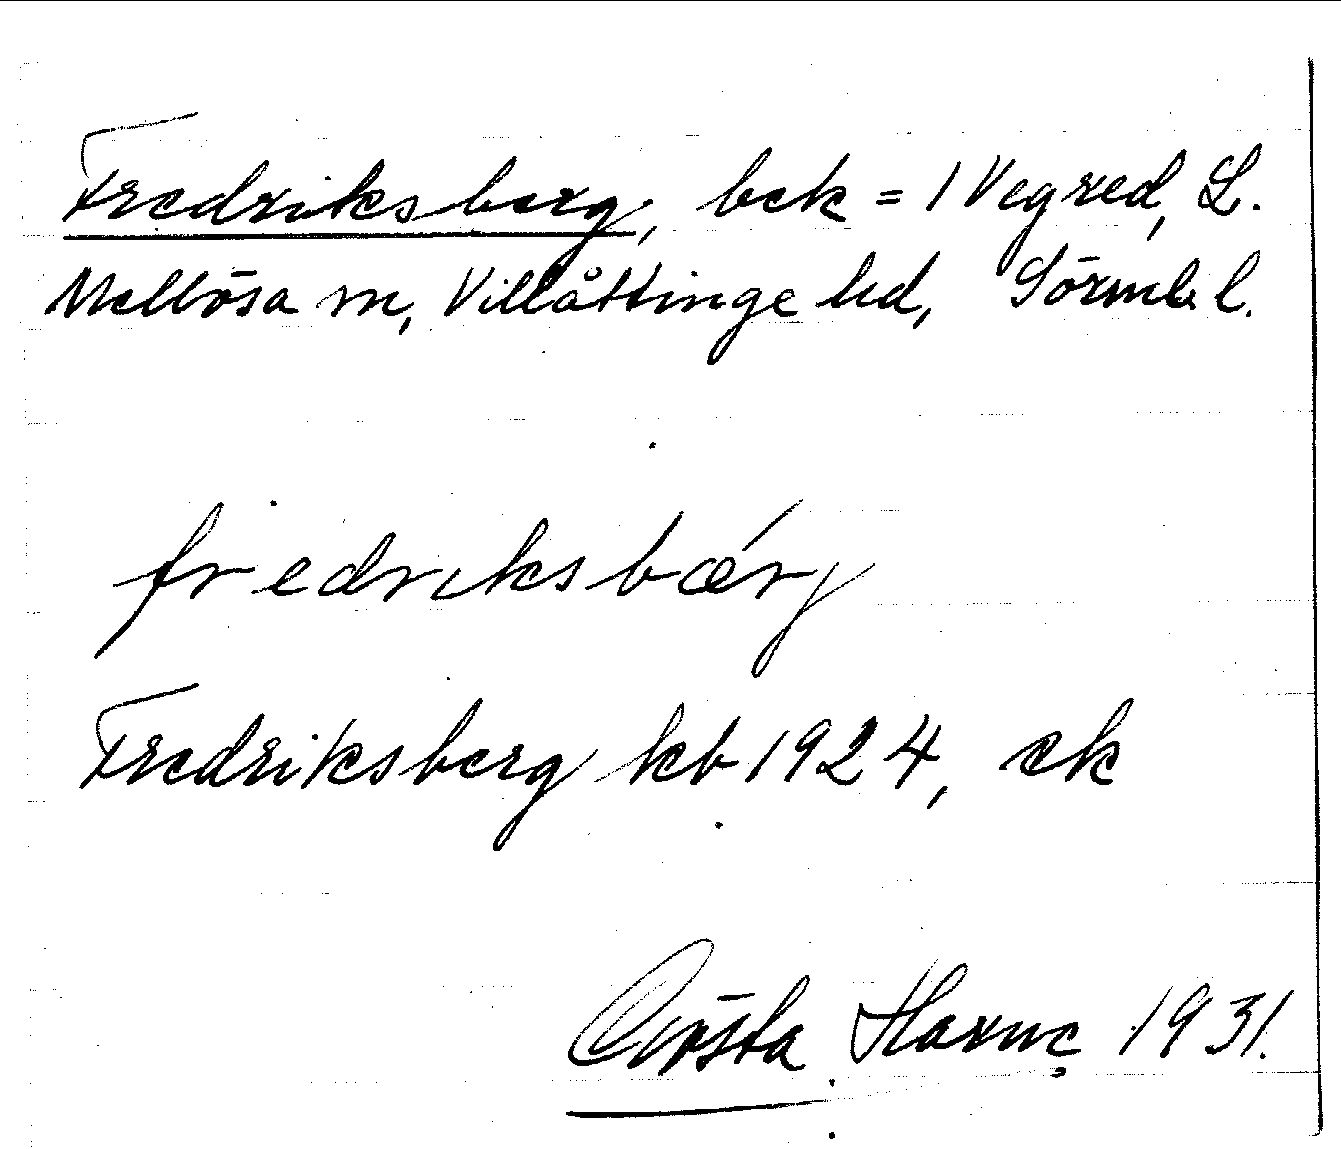 Fredriksberg, bek = 1 Vegred, L.
Mellösa sn, Villåttinge hd, Sörml l.
fredriksbærj
Fredriksberg kb 1924, ek
Gösta 1931.